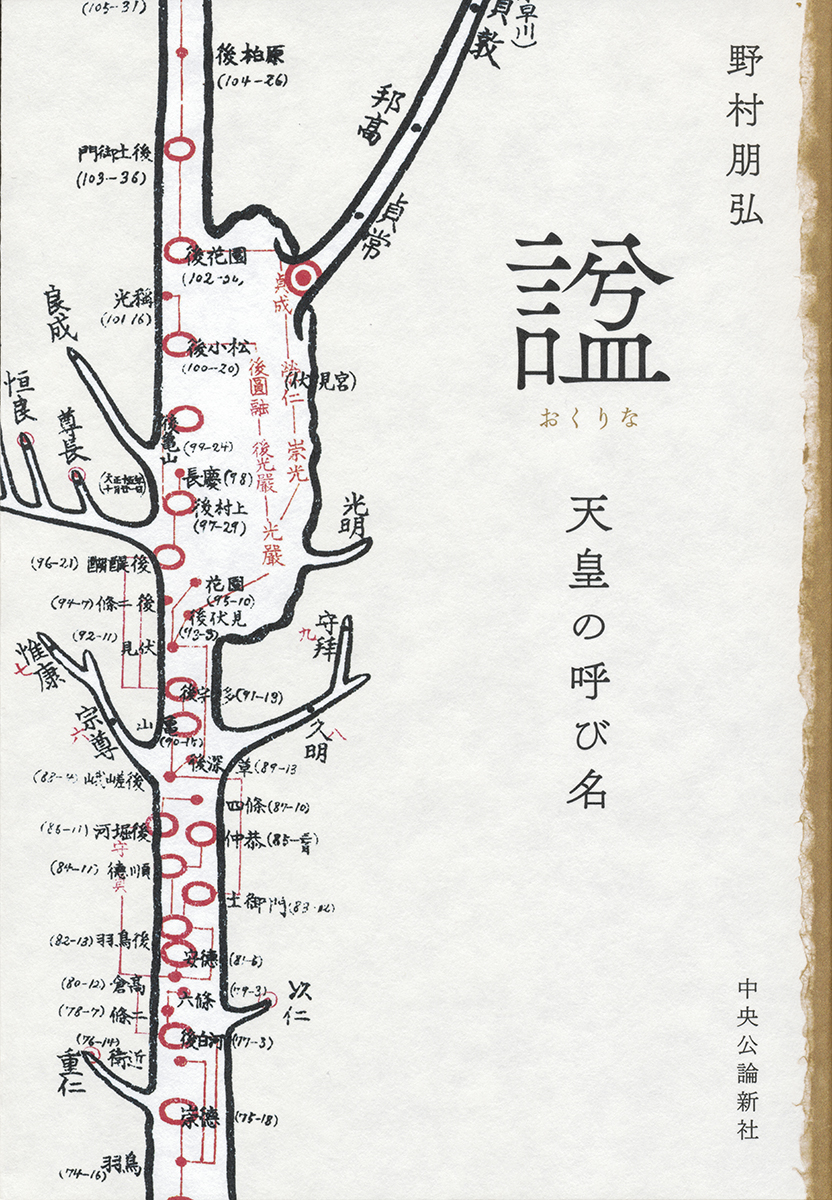 野村朋弘
諡
おくりな
天皇の呼び名
中央公論新社
(105-31)
後柏原
(104-26)
門御土後
(103-36)
後花園
光稱
(101 16)
後小松
(100-20)
後亀山
(99-24)
長慶(98)
後村上
(97-29)
(96-21)醐醍後
花園
(95-10)
(94-7)條二後
後伏見
(92-11)
見伏
後宇多(91-13)
山亀
(90-15)
後深草(89-13
峨嵯後
四條(87-10)
(86-11)河堀後
仲恭(85-
(84-11)徳順
土御門
(82-13)羽鳥後
安徳(81-6)
(80-12)倉高
六條(79-3)
(78-7)條二
後白河(77-3)
(76-14)
衛近
崇徳(75-18)
羽鳥
(74-16)
貞敦
邦高
貞常
貞成
(伏見宮)
後圓融
後光嚴
崇光
光嚴
良成
恒良
尊良
光明
守邦
九
惟康
七
宗尊
六
久明
八
守貞
以仁
重仁